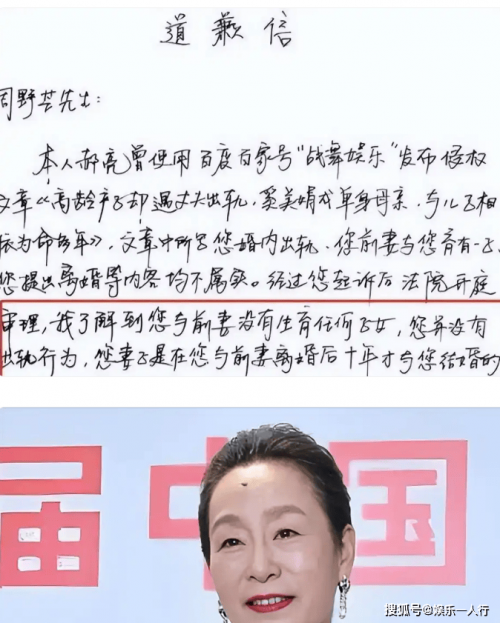 道歉信
周野芒先生：
本人郝亮曾使用百度百家号"战舞娱乐"发布侵权
文章《高龄产子却遇丈夫出轨，奚美娟成单身母亲，与儿子相
依为命多年》，文章中所写您婚内出轨、您前妻与您育有一子、
您提出离婚等内容均不属实。经过您起诉后法院开庭
审理，我了解到您与前妻没有生育任何子女，您并没有
出轨行为，您妻子是在您与前妻离婚后十年才与您结婚的
届中国
搜狐号@娱乐一人行